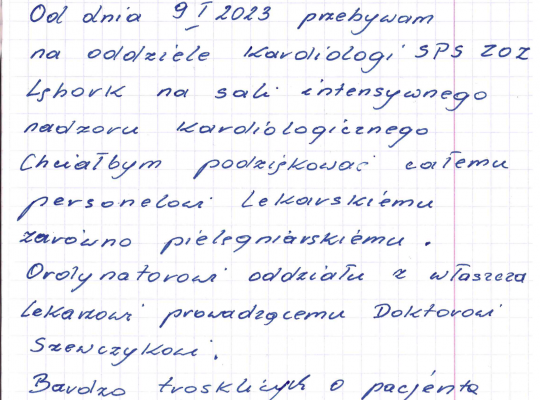 Od dnia 9 I 2023 przebywam
na oddziele Kardiologi SPS ZOZ
Lębork na sali intensywnego
nadzoru kardiologicznego
Chciałbym podziękować całemu
personelowi Lekarskiému
zarówno pielęgniarskiému.
Ordynatorowi oddziału z właszcza
Lekarzowi prowadzącemu Doktorowi
Szewczykowi.
Bardzo troskliwych o pacjénta